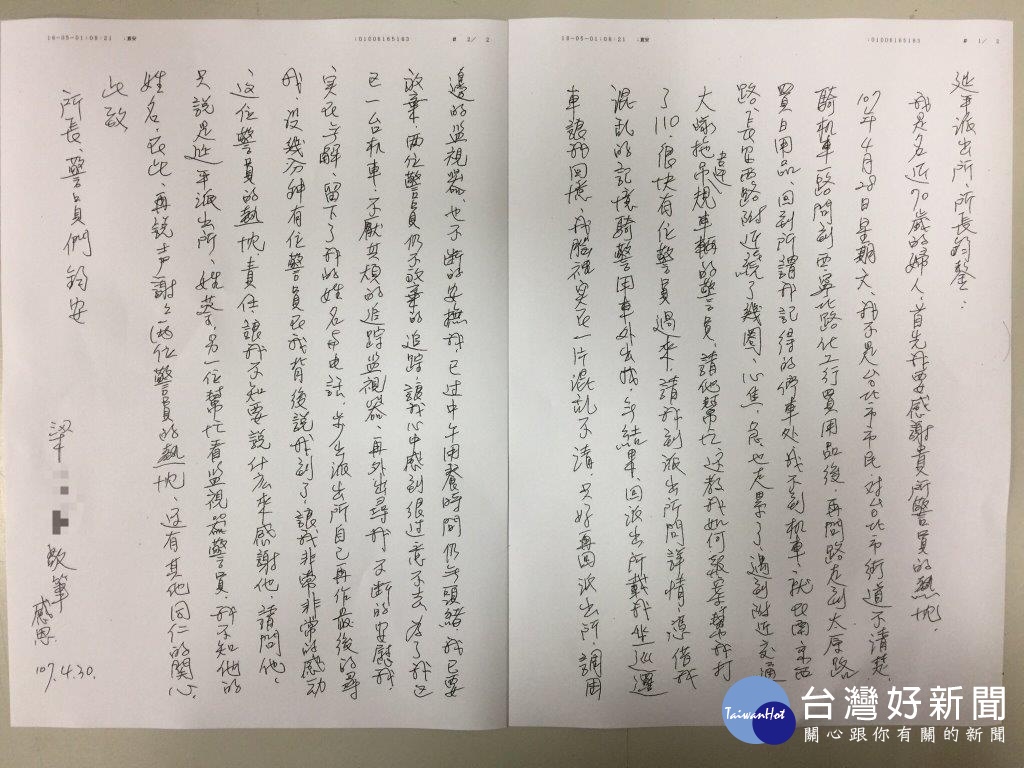 18-05-01;08:21 ;
;01006165163 # 1/ 2
延平派出所、所長鈞鑒：
我是名近70歲的婦人、首先我要感謝貴所警員的熱忱、
107年4月28日星期六、我不是台北市市民、對台北市街道不清楚、
騎机車一路問到西寧北路化工行買用品後、再問路走到太原路
買日用品、回到所謂我記得的停車处、找不到机車、就在南京西
路、長安西路附近繞了幾圈、心焦、急也走累了、遇到附近交通
大隊拖吊違規車輛的警員、請他幫忙、這教我如何報案幫我打
了110、很快有位警員過來、請我到派出所問詳情、憑借我
混乱的記憶騎警用車外出找、無結果、因派出所載我坐巡邏
車讓我回憶、我腦裡实在一片混乱不清、只好再回派出所調閱
18-05-01;08:21 ;
;01006165163 # 2/ 2
邊的监視器、也不斷的安撫我、已過中午用餐時間仍無頭緒、我已要
放棄、兩位警員仍不放棄的追踪、讓我心中感到很过意不去、為了我这
已一台机車、不厭其煩的追踪监視器、再外出尋找、不斷的安慰我
实在無解、留下了我的姓名與电話、步出派出所自己再作最後的尋
找、没幾分钟有位警員在我背後說找到了、讓我非常非常的感动
这位警員的熱忱、責任、讓我不知要說什么來感謝他、請問他、
只說是延平派出所、姓蔡、另一位幫忙看监視器警員、我不知他的
姓名、在此、再說声謝謝兩位警員的熱忱、还有其他同仁的関心、
此致
所長、警員們 鈞安
梁 敬筆
感恩
107.4.30.
TaiwanHot
台灣好新聞
關心跟你有關的新聞